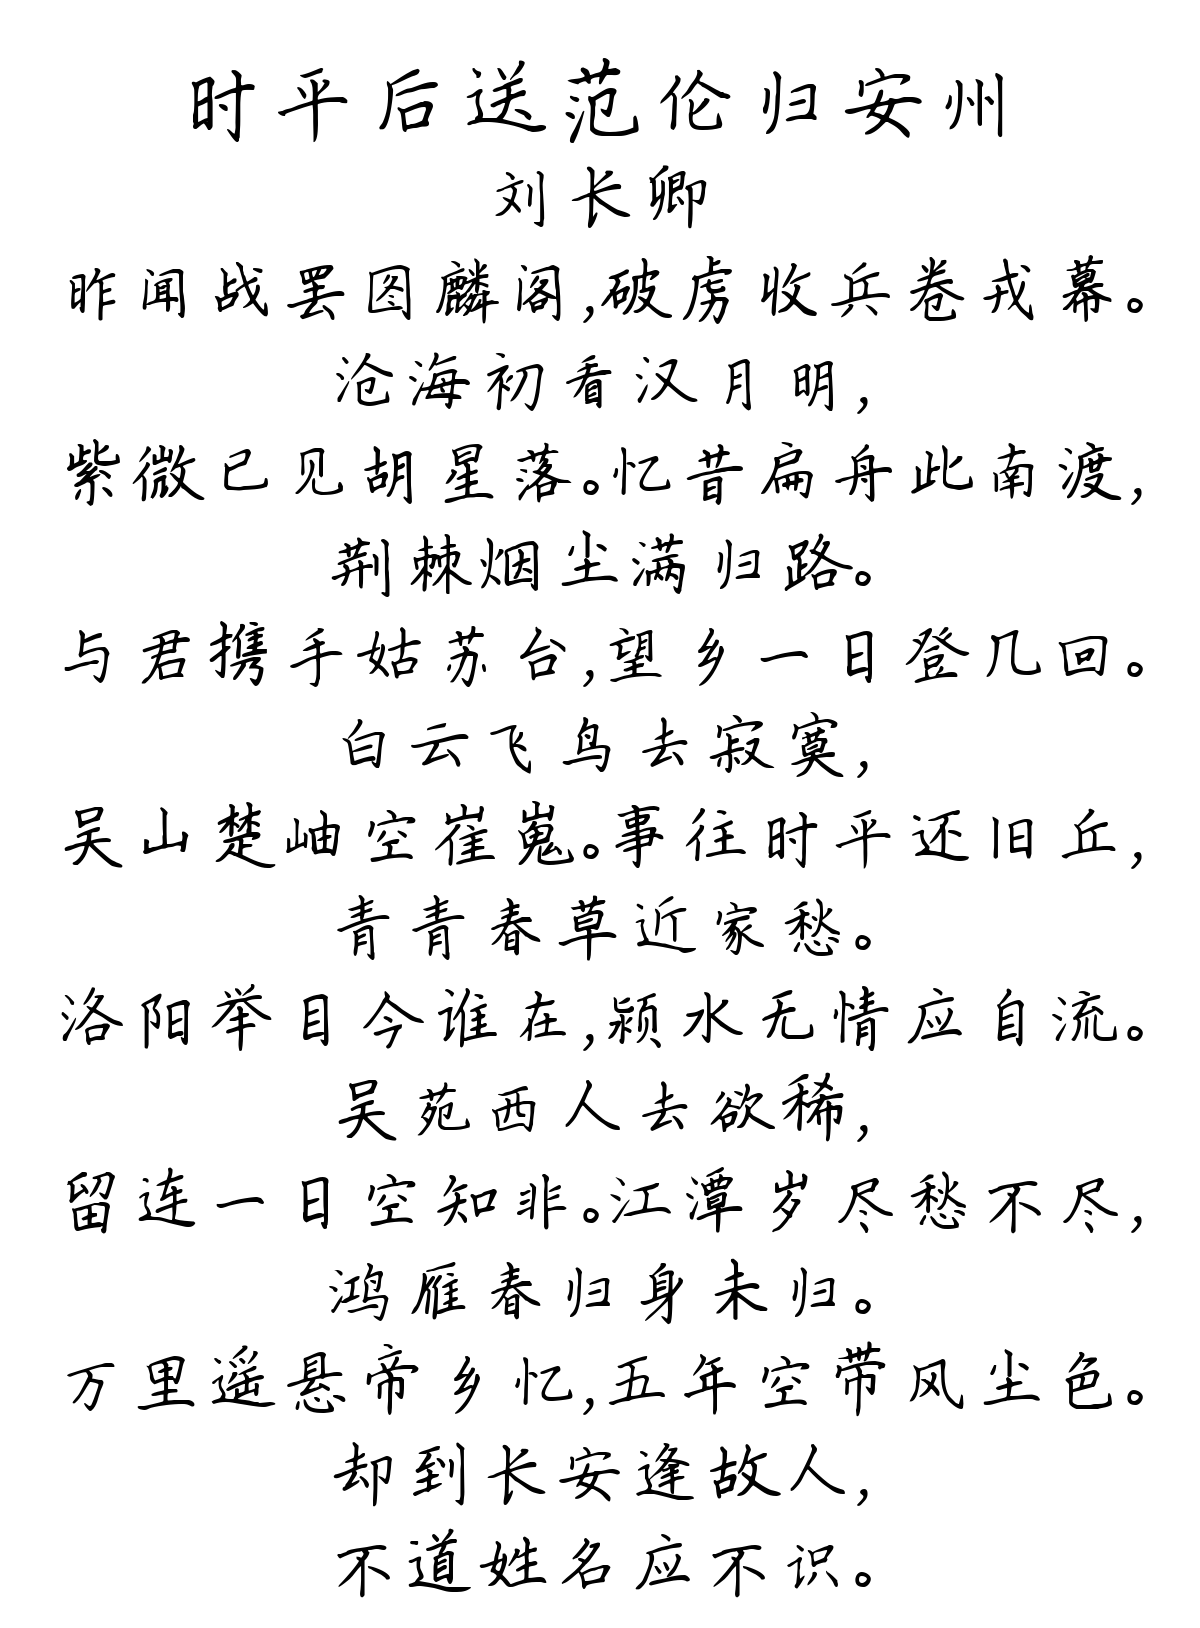 时平后送范伦归安州
刘长卿
昨闻战罢图麟阁,破虏收兵卷戎幕。
沧海初看汉月明,
紫微已见胡星落。忆昔扁舟此南渡,
荆棘烟尘满归路。
与君携手姑苏台,望乡一日登几回。
白云飞鸟去寂寞,
吴山楚岫空崔嵬。事往时平还旧丘,
青青春草近家愁。
洛阳举目今谁在,颍水无情应自流。
吴苑西人去欲稀,
留连一日空知非。江潭岁尽愁不尽,
鸿雁春归身未归。
万里遥悬帝乡忆,五年空带风尘色。
却到长安逢故人,
不道姓名应不识。